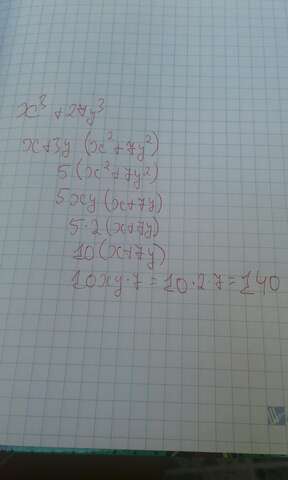 x³ + 27y³
x+3y (x²+7y²)
5 (x²+7y²)
5xy (x+7y)
5·2 (x+7y)
10 (x+7y)
10xy·7 = 10·2·7 = 140